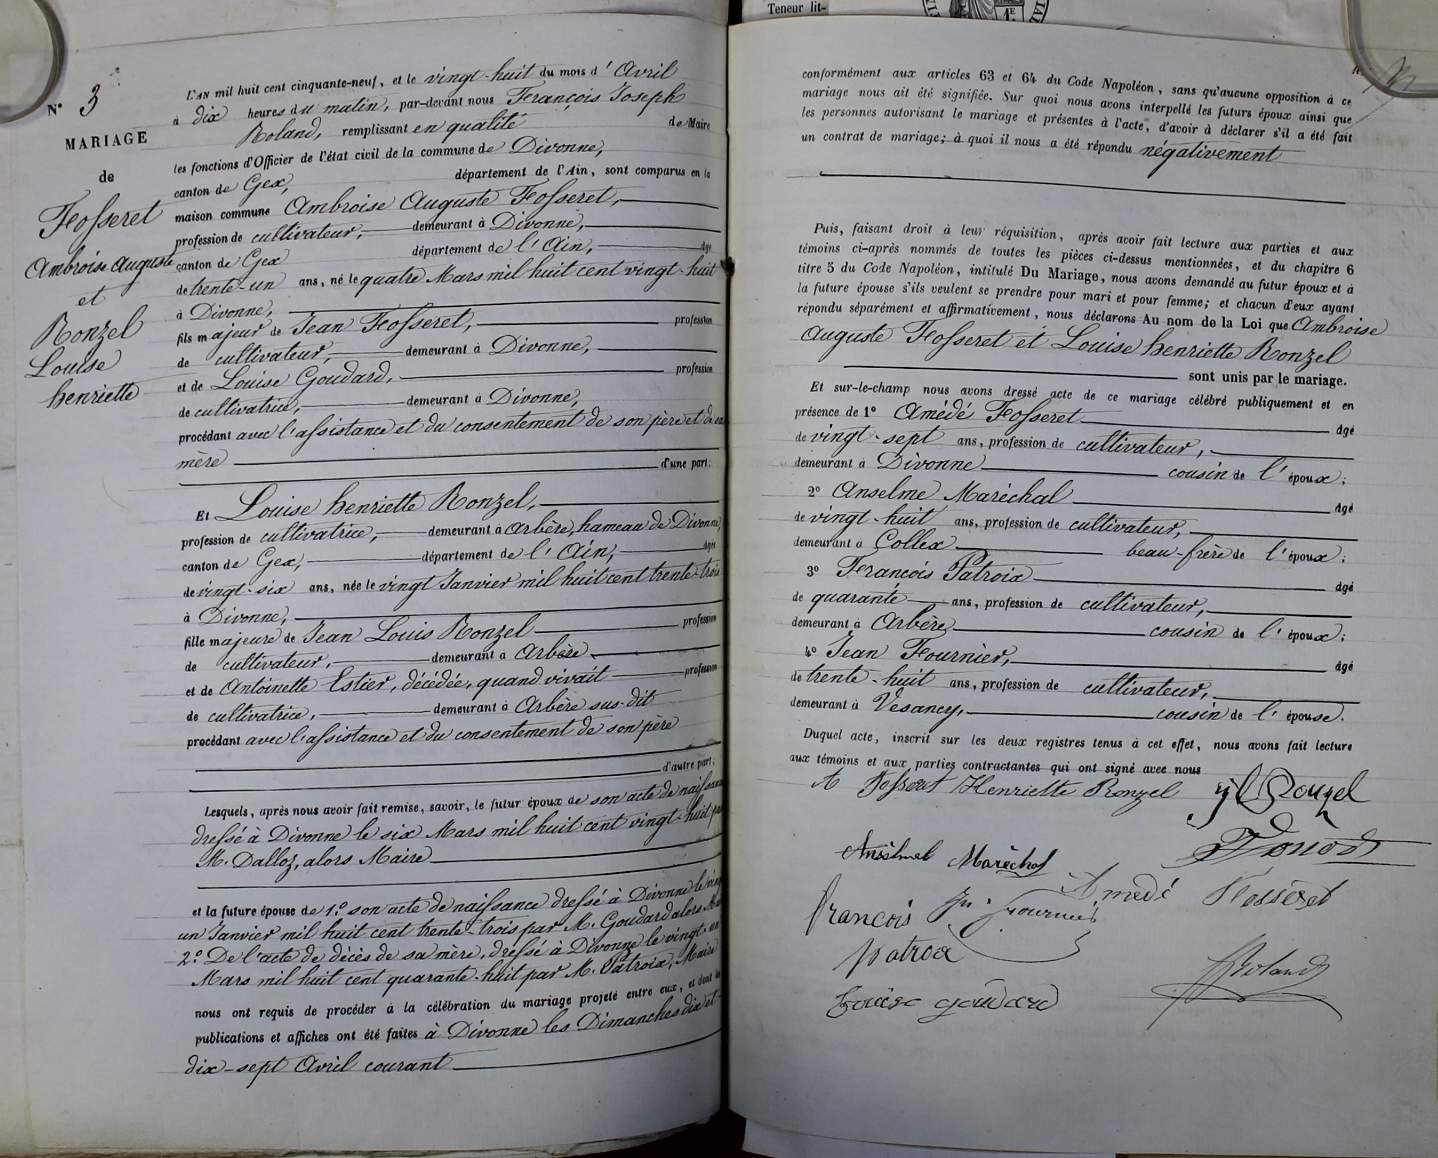 Teneur lit-
N° 3
MARIAGE
de
Fosseret
Ambroise Auguste
et
Ronzel
Louise
henriette
L'AN mil huit cent cinquante-neuf, et le vingt-huit du mois d'Avril
à dix heures du matin, par-devant nous François Joseph
Roland, remplissant en qualité de Maire
les fonctions d'Officier de l'état civil de la commune de Divonne,
canton de Gex, département de l'Ain, sont comparus en la
maison commune Ambroise Auguste Fosseret,
profession de cultivateur, demeurant à Divonne,
canton de Gex département de l'Ain, âgé
de trente-un ans, né le quatre Mars mil huit cent vingt-huit
à Divonne,
fils majeur de Jean Fosseret, profession
de cultivateur, demeurant à Divonne,
et de Louise Goudard, profession
de cultivatrice, demeurant à Divonne,
procédant avec l'assistance et du consentement de son père et de sa
mère d'une part;
Et Louise henriette Ronzel,
profession de cultivatrice, demeurant à Arbère, hameau de Divonne,
canton de Gex, département de l'Ain, âgée
de vingt-six ans, née le vingt Janvier mil huit cent trente-trois
à Divonne,
fille majeure de Jean Louis Ronzel profession
de cultivateur, demeurant à Arbère
et de Antoinette Estier, décédée, quand vivait profession
de cultivatrice, demeurant à Arbère sus-dit
procédant avec l'assistance et du consentement de son père
d'autre part;
Lesquels, après nous avoir fait remise, savoir, le futur époux de son acte de naissance
dressé à Divonne le six Mars mil huit cent vingt-huit par
M. Dalloz, alors Maire
et la future épouse de 1.° son acte de naissance dressé à Divonne le vingt
un Janvier mil huit cent trente-trois par M. Goudard alors Maire
2.° De l'acte de décès de sa mère, dressé à Divonne le vingt-un
Mars mil huit cent quarante-huit par M. Patroix, Maire
nous ont requis de procéder à la célébration du mariage projeté entre eux, et dont les
publications et affiches ont été faites à Divonne les Dimanches dix et
dix-sept Avril courant
conformément aux articles 63 et 64 du Code Napoléon, sans qu'aucune opposition à ce
mariage nous ait été signifiée. Sur quoi nous avons interpellé les futurs époux ainsi que
les personnes autorisant le mariage et présentes à l'acte, d'avoir à déclarer s'il a été fait
un contrat de mariage; à quoi il nous a été répondu négativement
Puis, faisant droit à leur réquisition, après avoir fait lecture aux parties et aux
témoins ci-après nommés de toutes les pièces ci-dessus mentionnées, et du chapitre 6
titre 5 du Code Napoléon, intitulé Du Mariage, nous avons demandé au futur époux et à
la future épouse s'ils veulent se prendre pour mari et pour femme; et chacun d'eux ayant
répondu séparément et affirmativement, nous déclarons Au nom de la Loi que Ambroise
Auguste Fosseret et Louise henriette Ronzel
sont unis par le mariage.
Et sur-le-champ nous avons dressé acte de ce mariage célébré publiquement et en
présence de 1° Amédé Fosseret âgé
de vingt-sept ans, profession de cultivateur,
demeurant à Divonne cousin de l'époux;
2° Anselme Maréchal âgé
de vingt-huit ans, profession de cultivateur,
demeurant à Collex beau-frère de l'époux;
3° François Patroix âgé
de quarante ans, profession de cultivateur,
demeurant à Arbère cousin de l'époux;
4° Jean Fournier, âgé
de trente-huit ans, profession de cultivateur,
demeurant à Vesancy, cousin de l'épouse.
Duquel acte, inscrit sur les deux registres tenus à cet effet, nous avons fait lecture
aux témoins et aux parties contractantes qui ont signé avec nous
A Fosseret Henriette Ronzel jl Ronzel
Ansèlmel Maréchal
Amedé Fosseret
francois jn fournier
patroa
Louise goudard
Roland